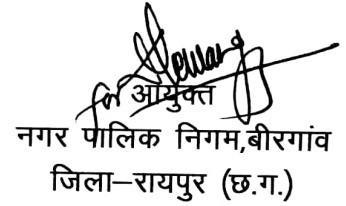 for
आयुक्त
नगर पालिक निगम,बीरगांव
जिला–रायपुर (छ.ग.)